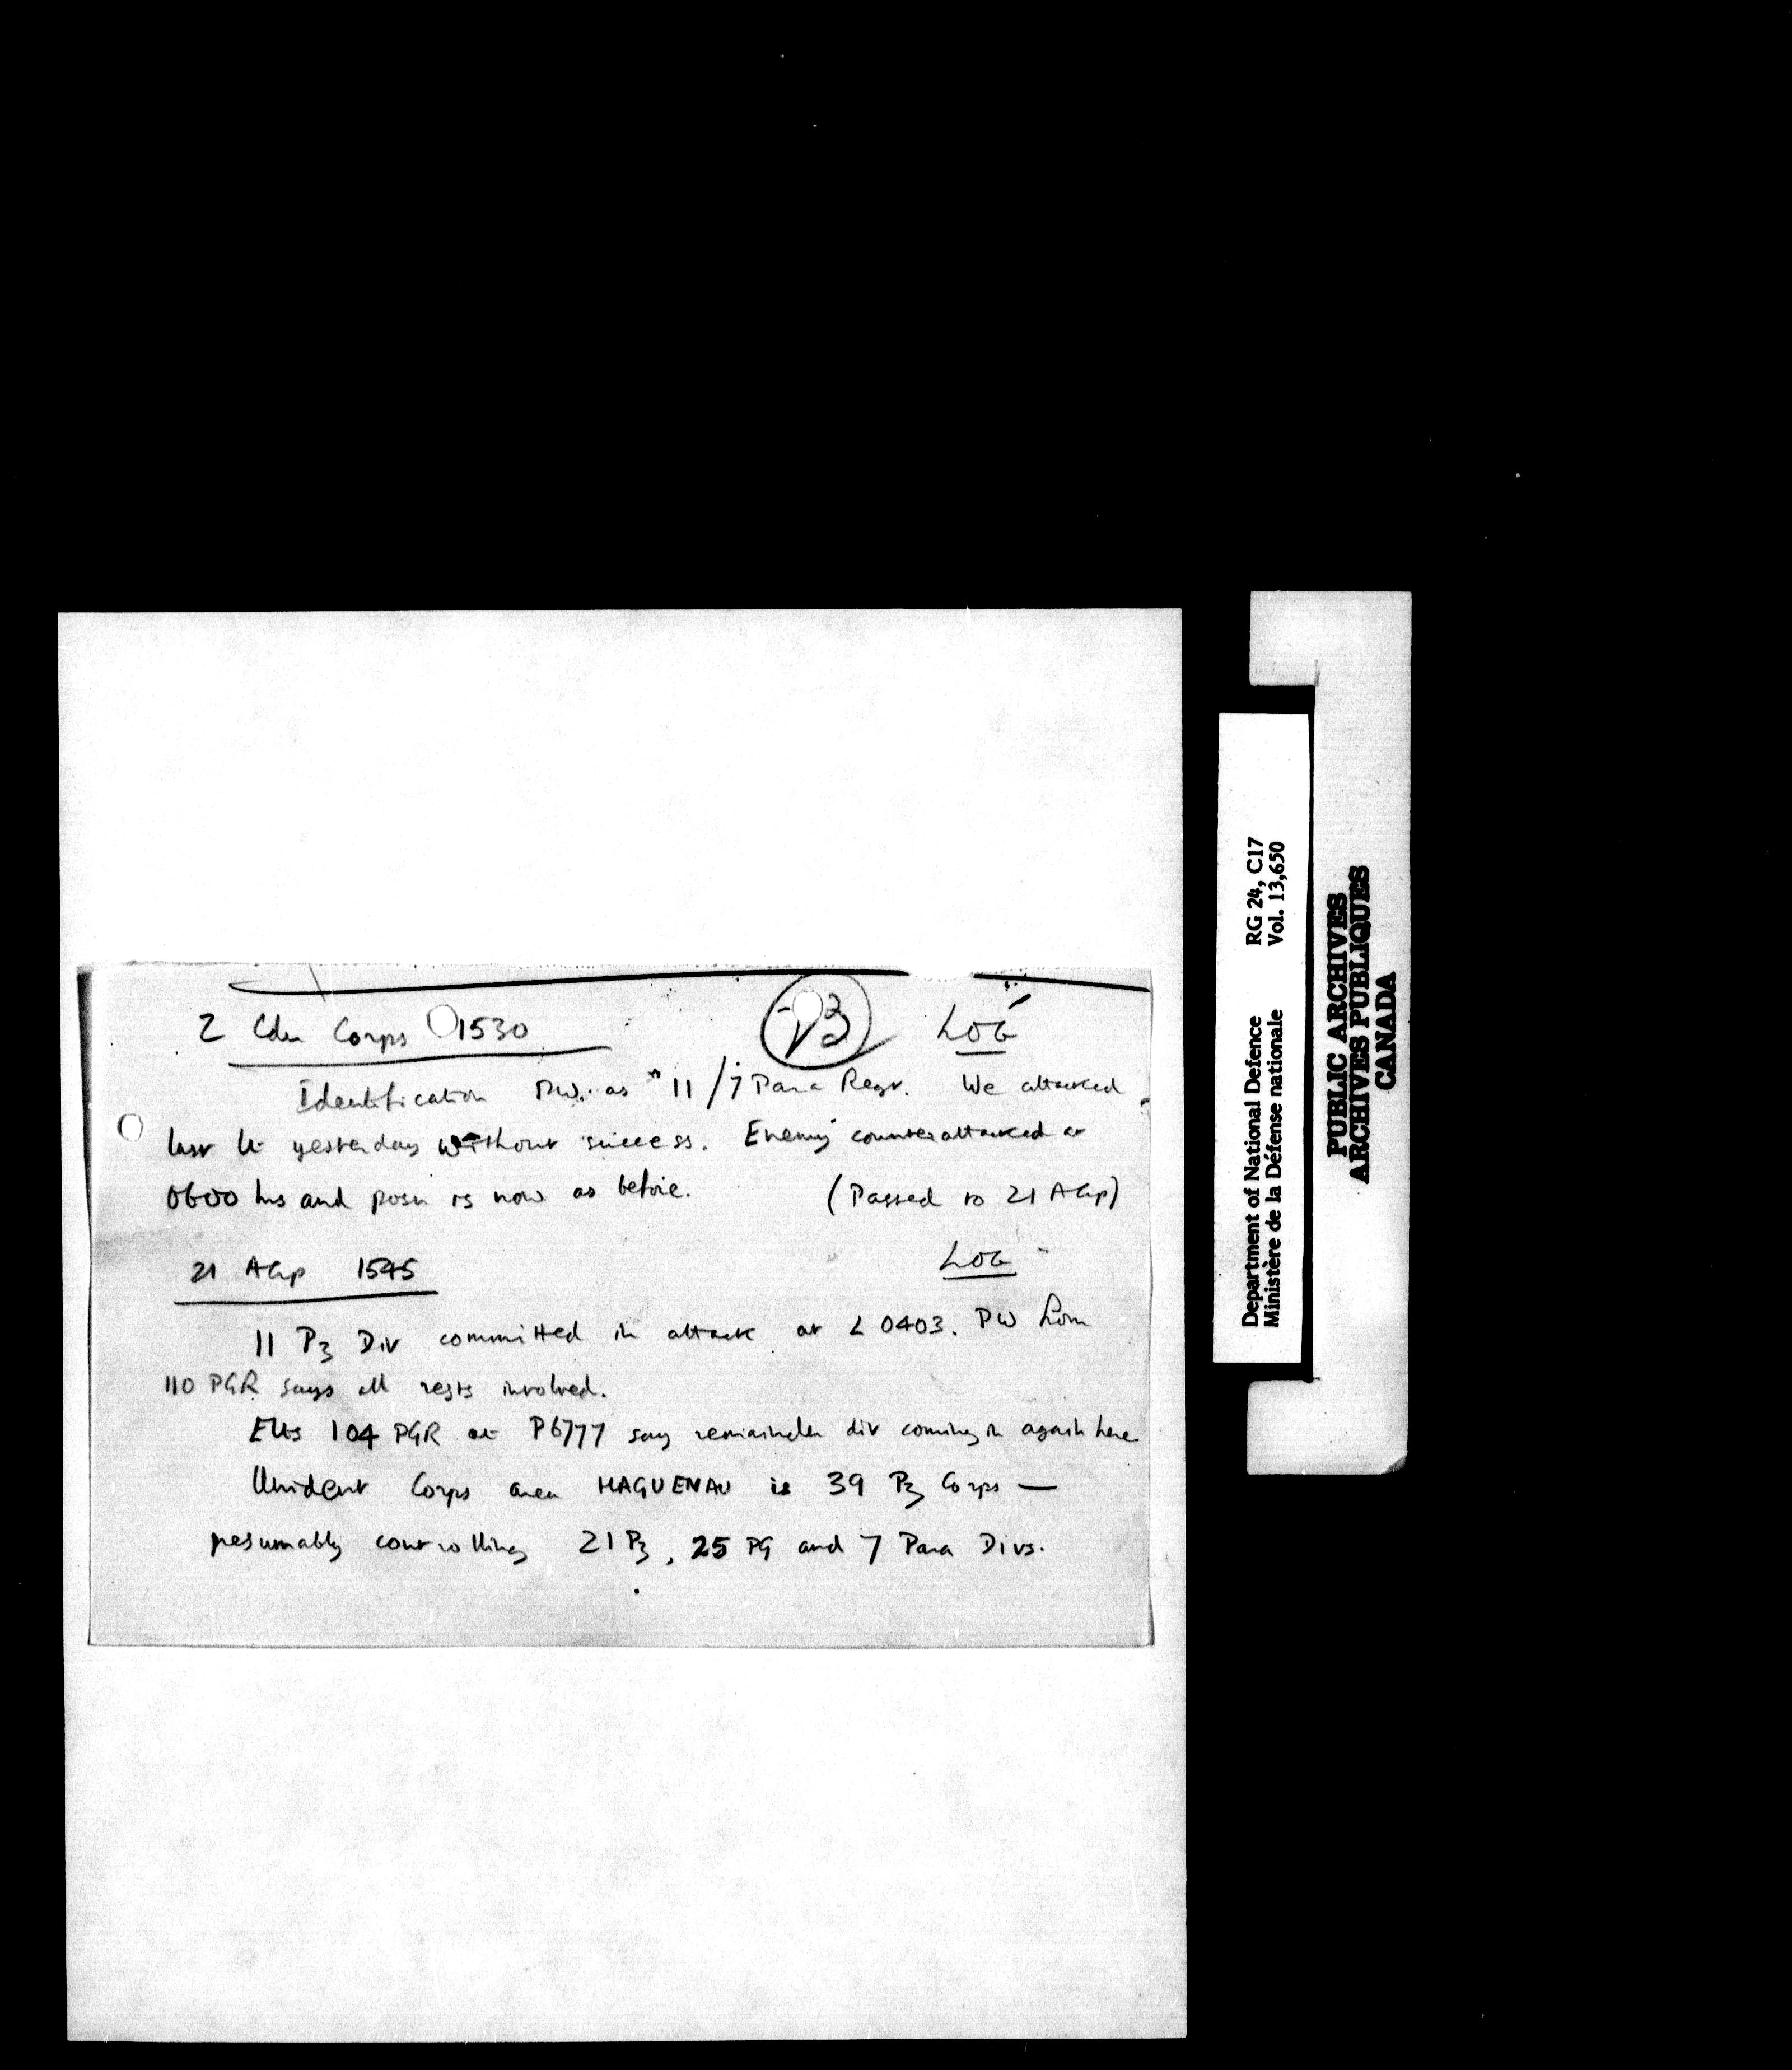 2 Cdn Corps 1530 LOG
Identification PW as 11/7 Para Regt. We attacked
last lt yesterday without success. Enemy counterattacked at
0600 hrs and posn is now as before. (Passed to 21 AGp)
21 AGp 1545 LOG
11 Pz Div committed in attack at L 0403. PW from
110 PGR says all regts involved.
Elts 104 PGR at P6777 say remainder div coming in again here
Unident Corps area HAGUENAU is 39 Pz Corps —
presumably controlling 21 Pz, 25 PG and 7 Para Divs.
Department of National Defence RG 24, C17
Ministère de la Défense nationale Vol. 13,650
PUBLIC ARCHIVES
ARCHIVES PUBLIQUES
CANADA